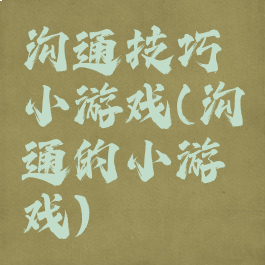 沟通技巧
小游戏(沟
通的小游
戏)